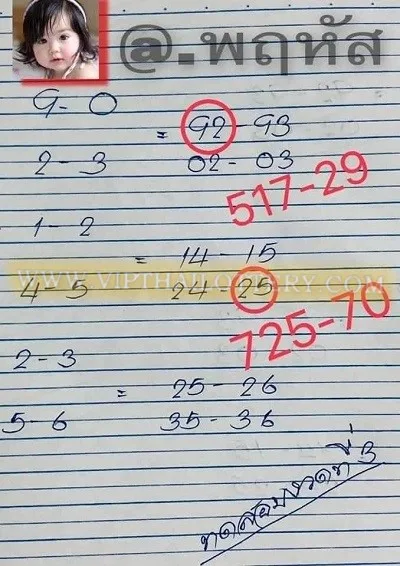 @.พฤหัส
9-0
= 92-93
2-3 02-03
517-29
1-2
= 14-15
WWW.VIPTHAILOTTERY.COM
4-5 24 25
725-70
2-3
= 25-26
5-6 35-36
ทดสอบงวดที่ 3